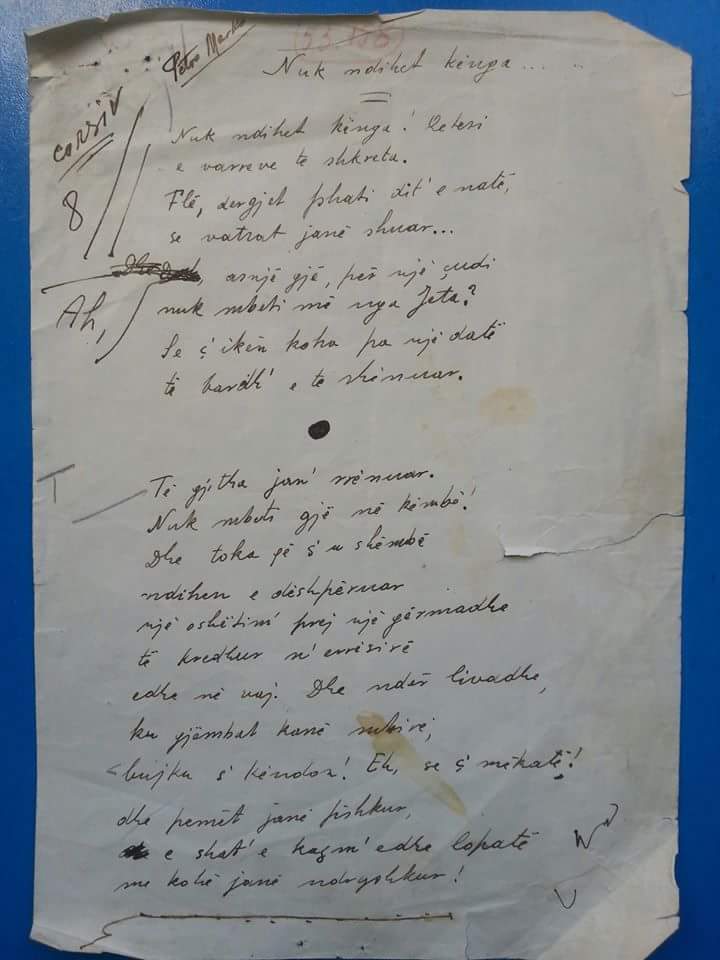 Petro Marko
corsiv
8
Nuk ndihet kënga.... ..
Nuk ndihet kënga! Qetesi
e varreve të shkreta.
Flë, dergjet fshati dit' e natë,
se vatrat janë shuar...
Ah, asnjë gjë, për një çudi
nuk mbeti më nga Jeta?
Se ç'ikën koha pa një datë
të bardh' e te shënuar.
Të gjitha jan' rrënuar.
Nuk mbeti gjë në këmbë!
Dhe toka që s'u shëmbë
ndihen e dëshpëruar
një oshëtim' prej një gërmadhe
të kredhur n'errësirë
edhe në vaj. Dhe ndër livadhe,
ku gjëmbat kanë mbirë,
bujku s'këndon! Eh, se ç'mëkatë!
dhe pemët janë fishkur,
e shat' e kazm' edhe lopatë
me kohë janë ndryshkur!